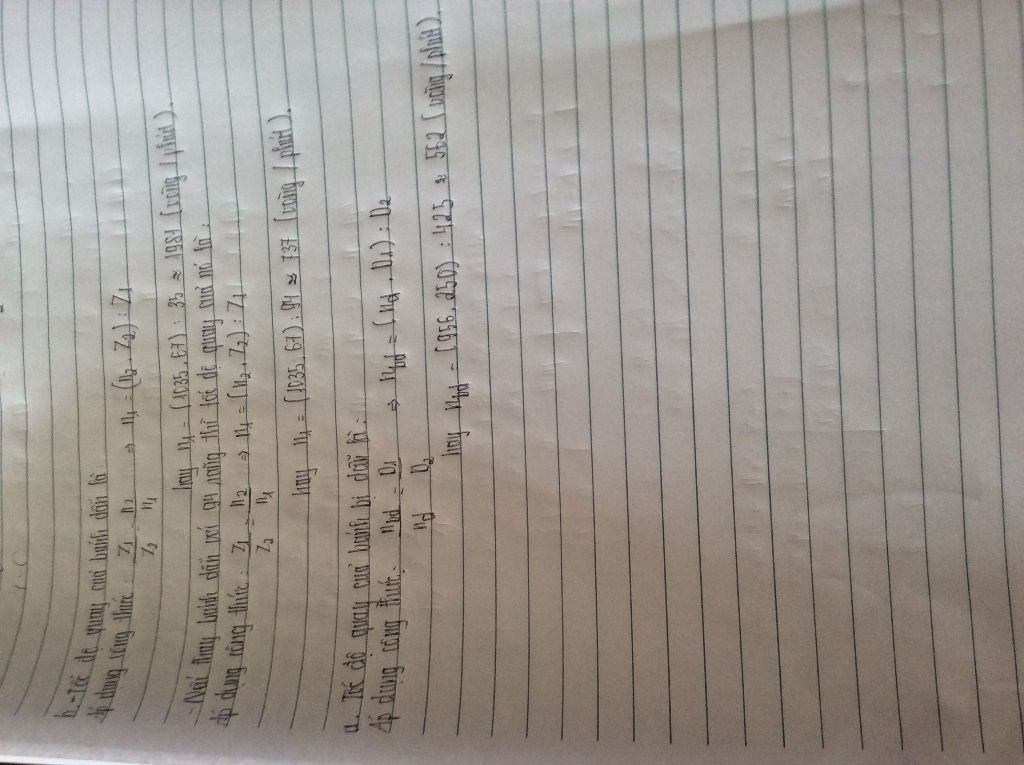 b. - Tốc độ quay của bánh dẫn là
Áp dụng công thức: Z1/Z2 = n2/n1 => n1 = (n2 . Z2) : Z1
hay n1 = (1035 . 67) : 35 ≈ 1981 (vòng / phút).
- Nếu thay bánh dẫn với 94 răng thì tốc độ quay của nó là:
Áp dụng công thức: Z1/Z2 = n2/n1 => n1 = (n2 . Z2) : Z1
hay n1 = (1035 . 67) : 94 ≈ 737 (vòng / phút).
a. Tốc độ quay của bánh bị dẫn là:
Áp dụng công thức: nbd/nd = D1/D2 => nbd = (nd . D1) : D2
hay nbd = (956 . 250) : 425 ≈ 562 (vòng / phút).